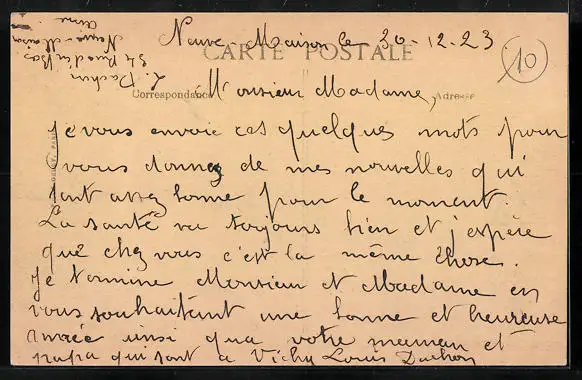 Neuve Maison le 30-12-23
CARTE POSTALE
10
Correspondance
Adresse
Monsieur Madame,
Je vous envoie ces quelques mots pour
vous donnez de mes nouvelles qui
sont assez bonne pour le moment.
La santé va toujours bien et j'espère
que chez vous c'est la même chose.
Je termine Monsieur et Madame en
vous souhaitant une bonne et heureuse
année insi qua votre maman et
papa qui sont a Vichy Louis Dachon
L. Dachon
34 Rue d'en Bas
Neuve-Maison
Aisne